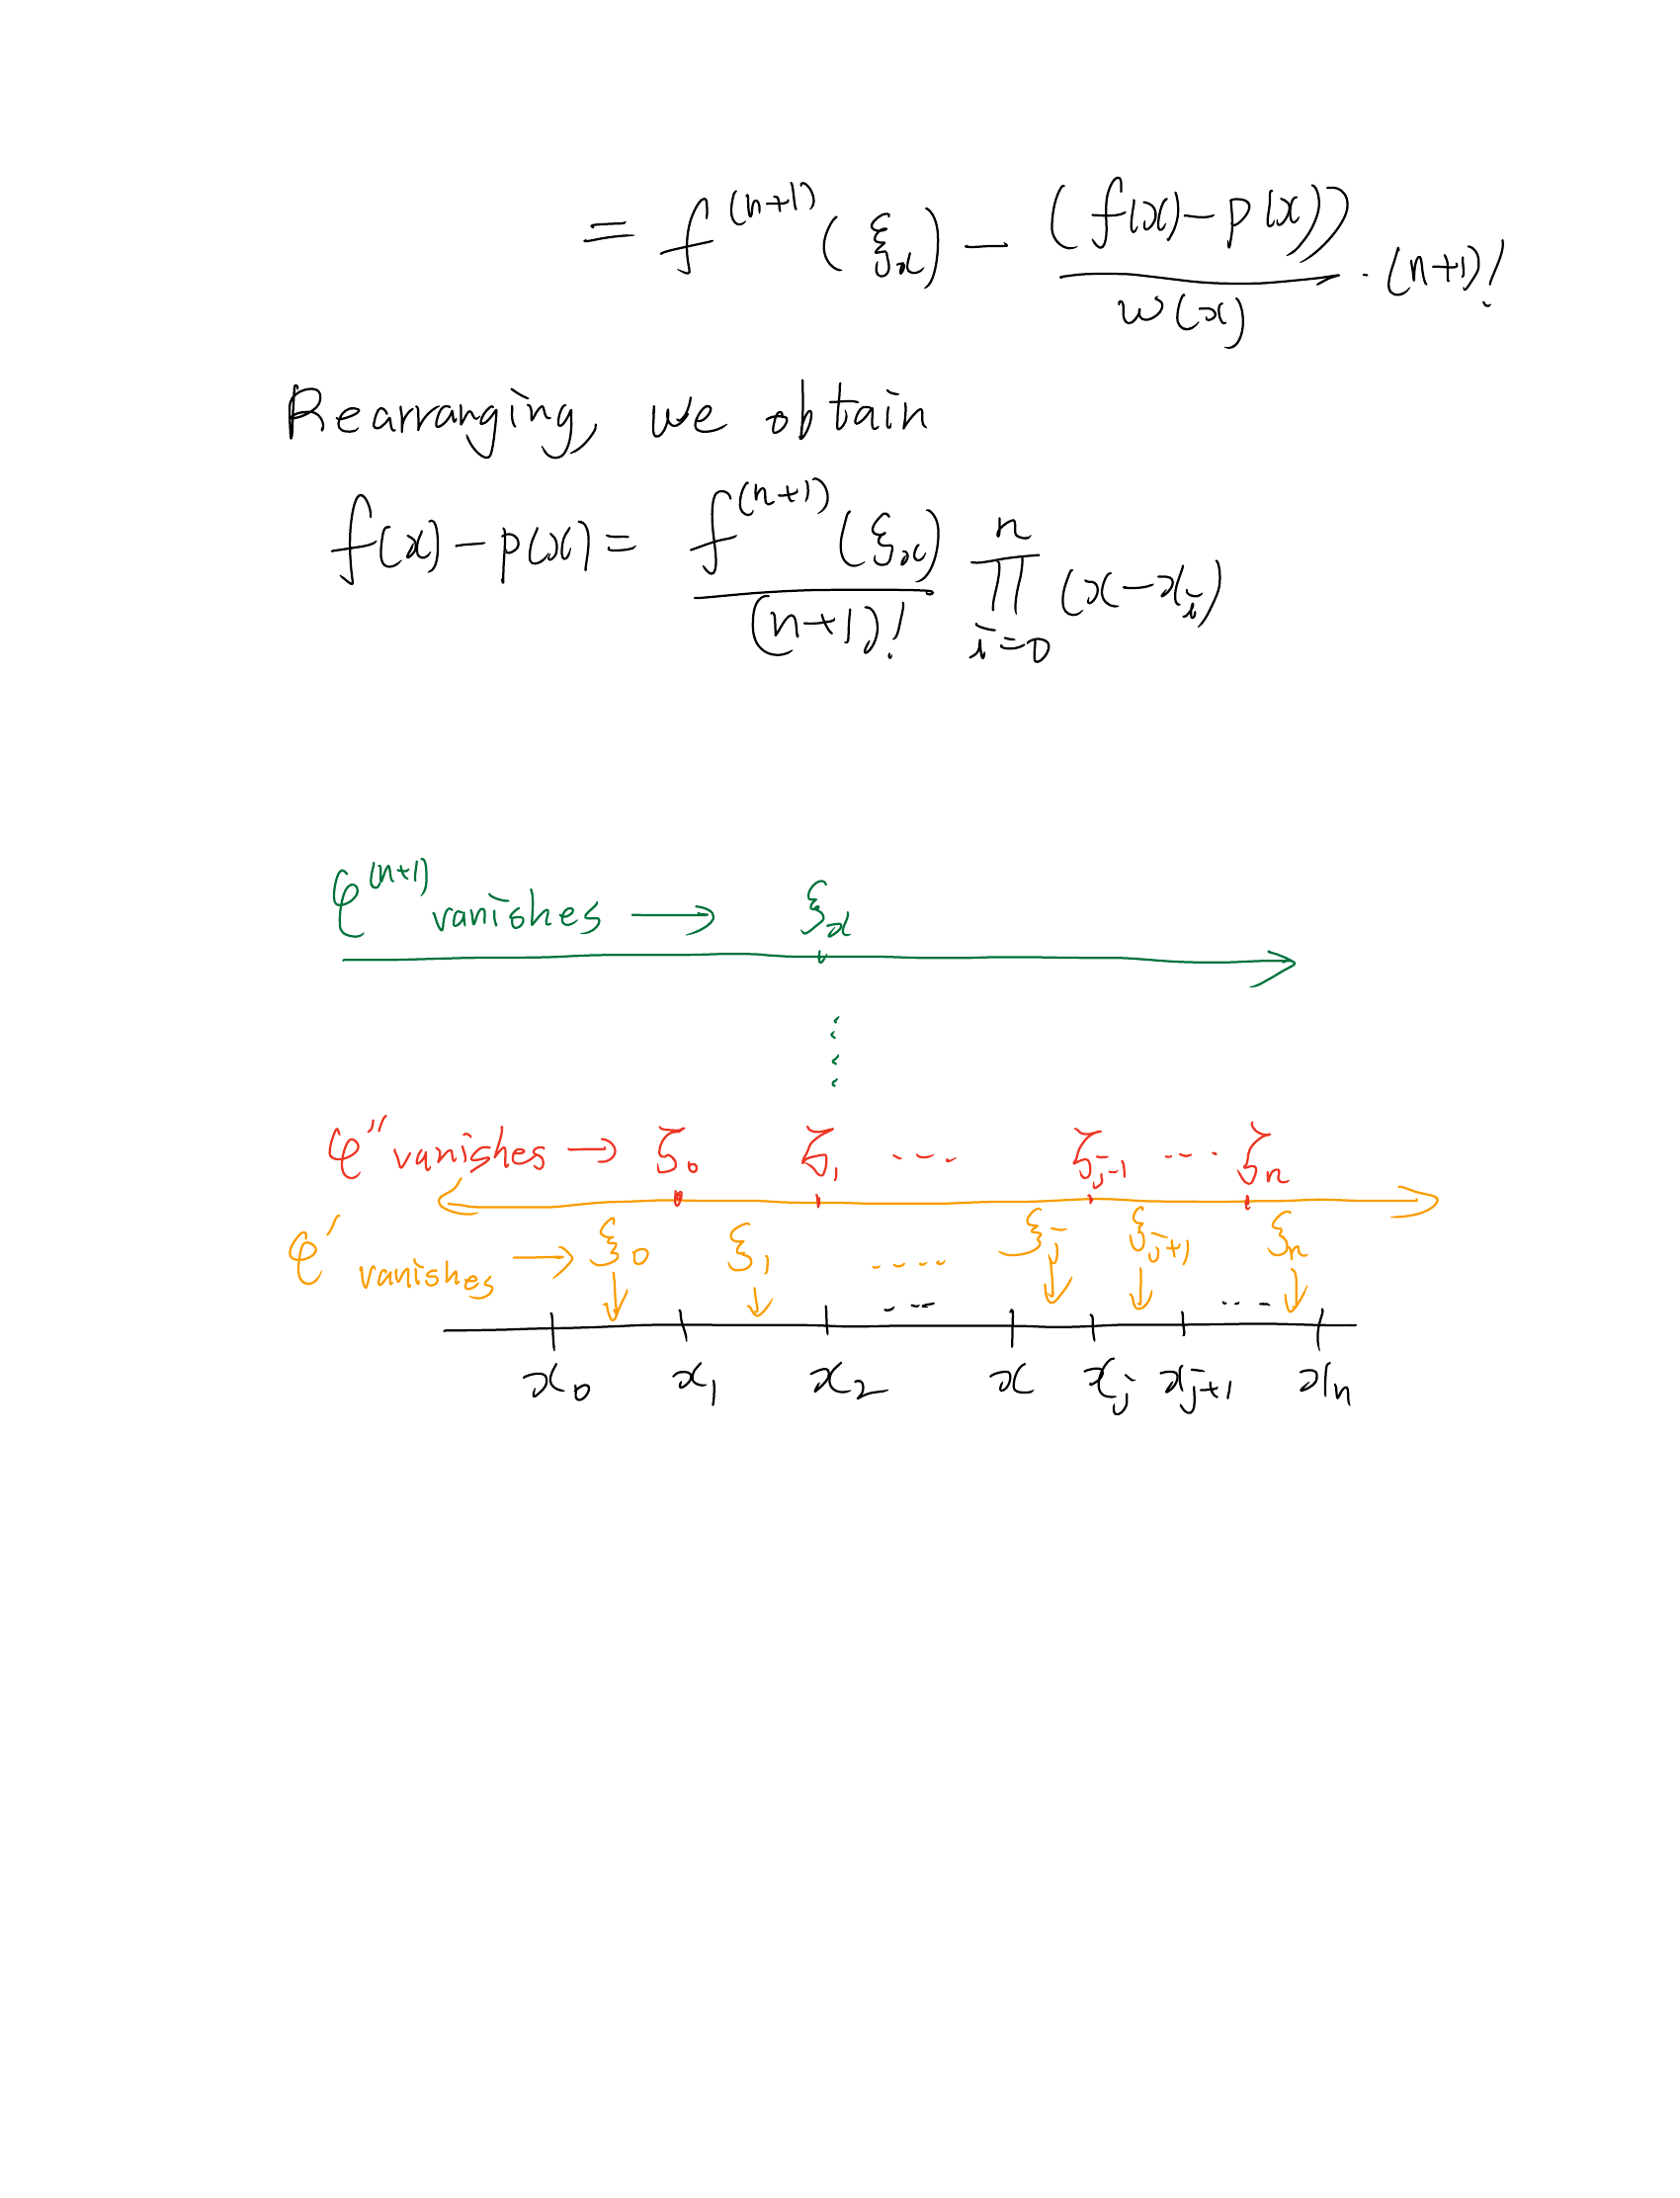 = f^{(n+1)}(ξ_x) − \frac{(f(x)−p(x))}{w(x)} · (n+1)!
Rearranging, we obtain
f(x)−p(x) = \frac{f^{(n+1)}(ξ_x)}{(n+1)!} ∏_{i=0}^{n} (x−x_i)
φ^{(n+1)} vanishes → ξ_x
φ'' vanishes → ζ_0 ζ_1 ... ζ_{j-1} ... ζ_n
φ' vanishes → ξ_0 ξ_1 .... ξ_j ξ_{j+1} ξ_n
x_0 x_1 x_2 x x_j x_{j+1} x_n